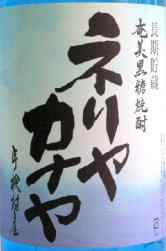 長期貯蔵
奄美黒糖焼酎
ネリヤ
カナヤ